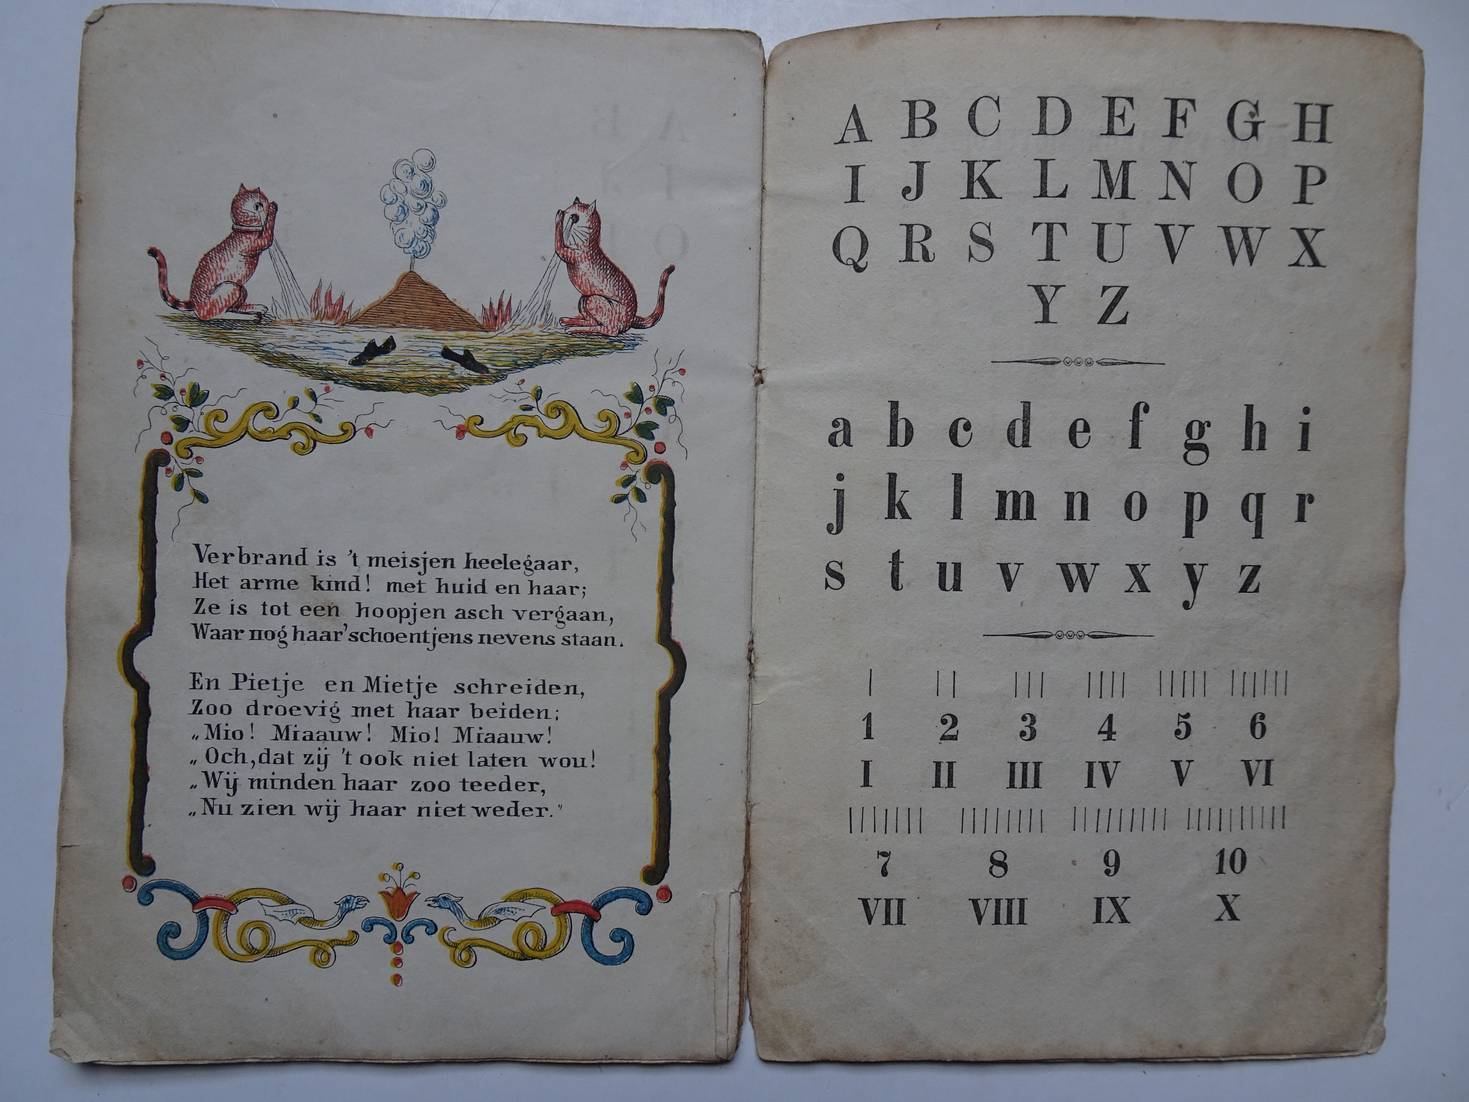 Verbrand is 't meisjen heelegaar,
Het arme kind! met huid en haar;
Ze is tot een hoopjen asch vergaan,
Waar nog haar' schoentjens nevens staan.
En Pietje en Mietje schreiden,
Zoo droevig met haar beiden;
„Mio! Miaauw! Mio! Miaauw!
„Och, dat zij 't ook niet laten wou!
„Wij minden haar zoo teeder,
„Nu zien wij haar niet weder."
A B C D E F G H
I J K L M N O P
Q R S T U V W X
Y Z
a b c d e f g h i
j k l m n o p q r
s t u v w x y z
| || ||| |||| ||||| ||||||
1 2 3 4 5 6
I II III IV V VI
||||||| |||||||| ||||||||| ||||||||||
7 8 9 10
VII VIII IX X